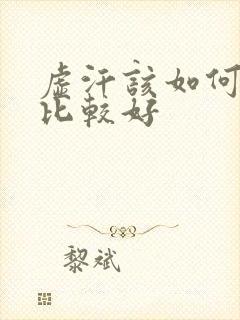 虚汗该如何
比较好
黎斌